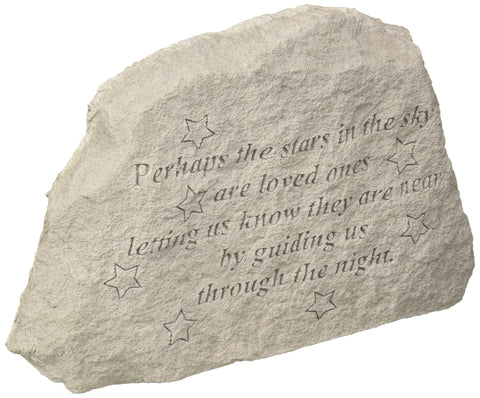 Perhaps the stars in the sky
are loved ones
letting us know they are near
by guiding us
through the night.